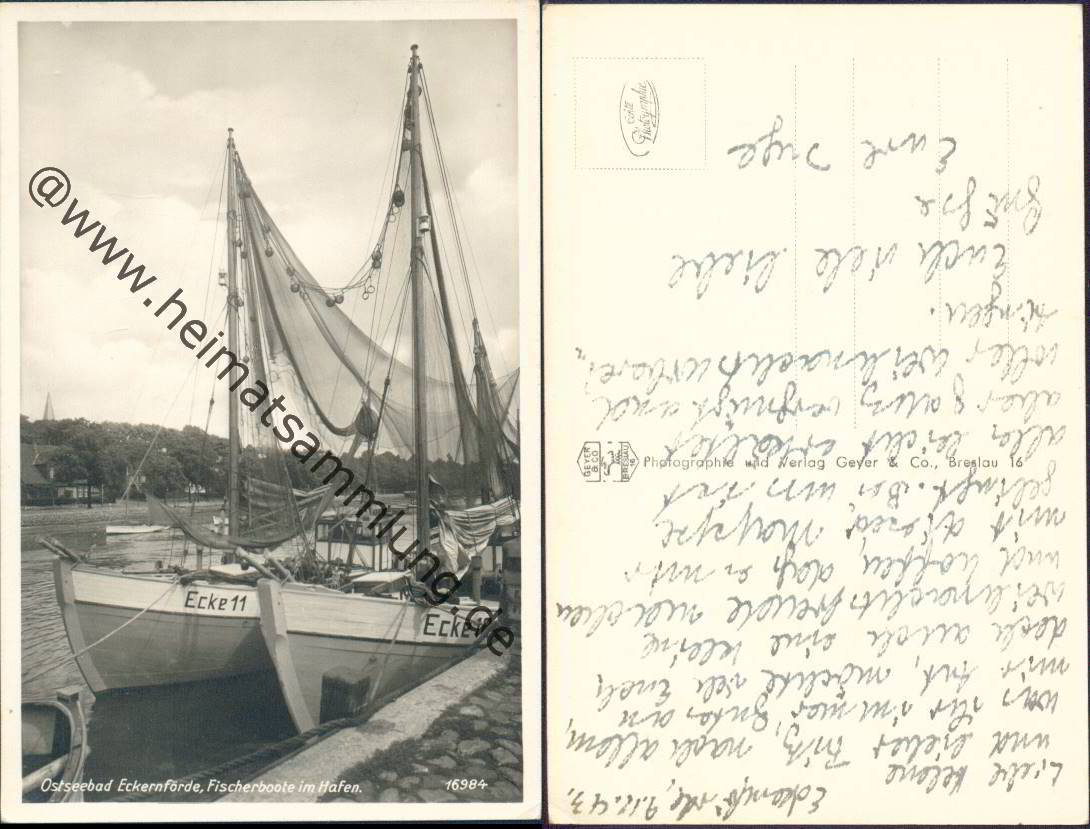 @www.heimatsammlung.de
Ecke 11
Ecke
Ostseebad Eckernförde, Fischerboote im Hafen. 16984
Echte
Photographie
GEYER
& CO
BRESLAU
16
Photographie und Verlag Geyer & Co., Breslau 16
Eckernförde, 9.12.43,
Liebe kleine
und lieber Fritz, nach allem,
was Ihr immer gutes an
mir tut, möchte ich Euch
doch auch eine kleine
Weihnachtsfreude machen
und hoffen, daß es mir
mit dieser Mappe
gelingt. Bei uns ist
alles leicht erkältet
aber ganz vergnügt und
voller Weihnachtsvorberei-
tungen.
Euch viele liebe
Grüße
Eure Inge